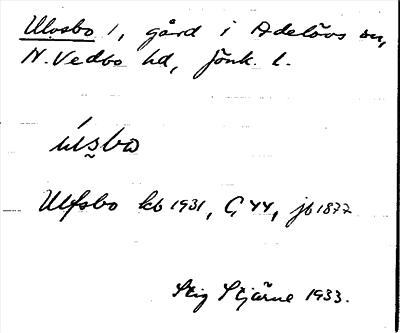 Ulvsbo 1, gård i Adelövs sn,
N. Vedbo hd, Jönk. l.
úlsbo
Ulfsbo kb 1931, G 44, jb 1877
Stig Stjärne 1933.